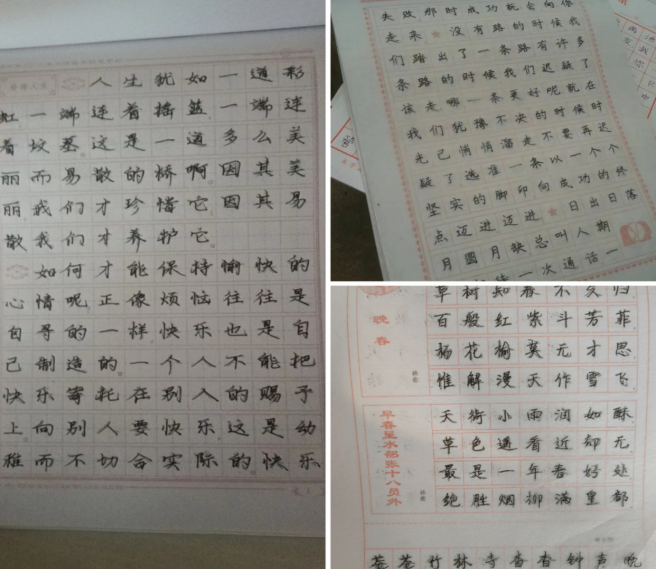 人生犹如一道彩
虹一端连着摇篮一端连
着坟墓这是一道多么美
丽而易散的桥啊因其美
丽我们才珍惜它因其易
散我们才养护它
如何才能保持愉快的
心情呢正像烦恼往往是
自寻的一样快乐也是自
己制造的一个人不能把
快乐寄托在别人的赐予
上向别人要快乐这是幼
稚而不切合实际的快乐
失败那时成功就会向你
走来没有路的时候我
们踏出了一条路有许多
条路的时候我们迟疑了
该走哪一条更好呢就在
我们犹豫不决的时候时
光已悄悄溜走不要再迟
疑了选准一条以一个个
坚实的脚印向成功的终
点迈进迈进日出日落
月圆月缺总叫人期
一次通话一
草树知春不久归
百般红紫斗芳菲
杨花榆荚无才思
惟解漫天作雪飞
晚春
韩愈
天街小雨润如酥
草色遥看近却无
最是一年春好处
绝胜烟柳满皇都
早春呈水部张十八员外
韩愈
苍苍竹林寺杳杳钟声晚